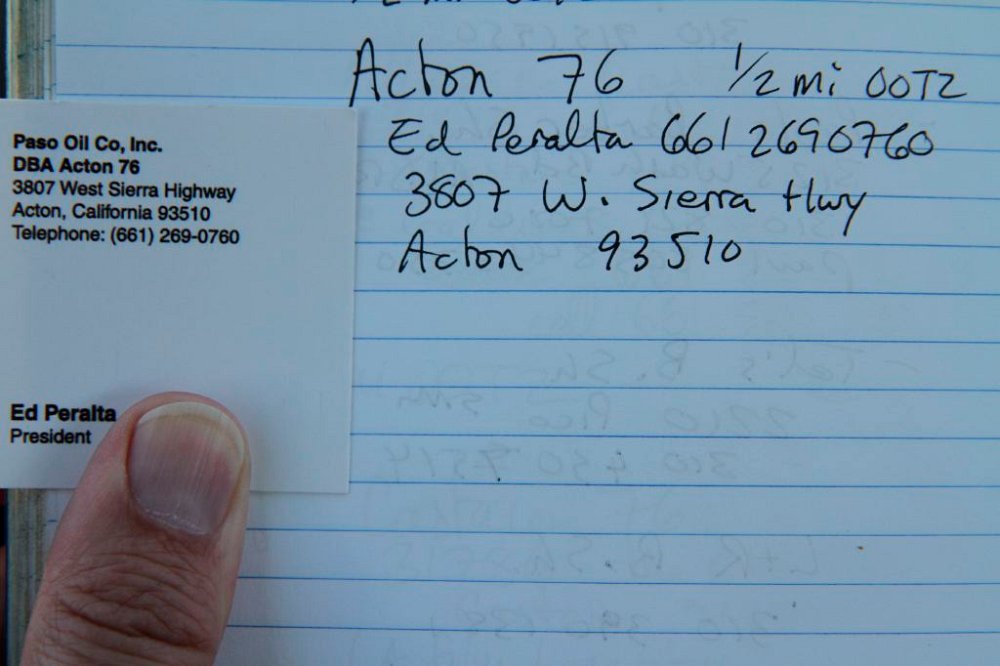 Paso Oil Co, Inc.
DBA Acton 76
3807 West Sierra Highway
Acton, California 93510
Telephone: (661) 269-0760
Ed Peralta
President
Acton 76 1/2 mi OOTZ
Ed Peralta 661 2690760
3807 W. Sierra Hwy
Acton 93510